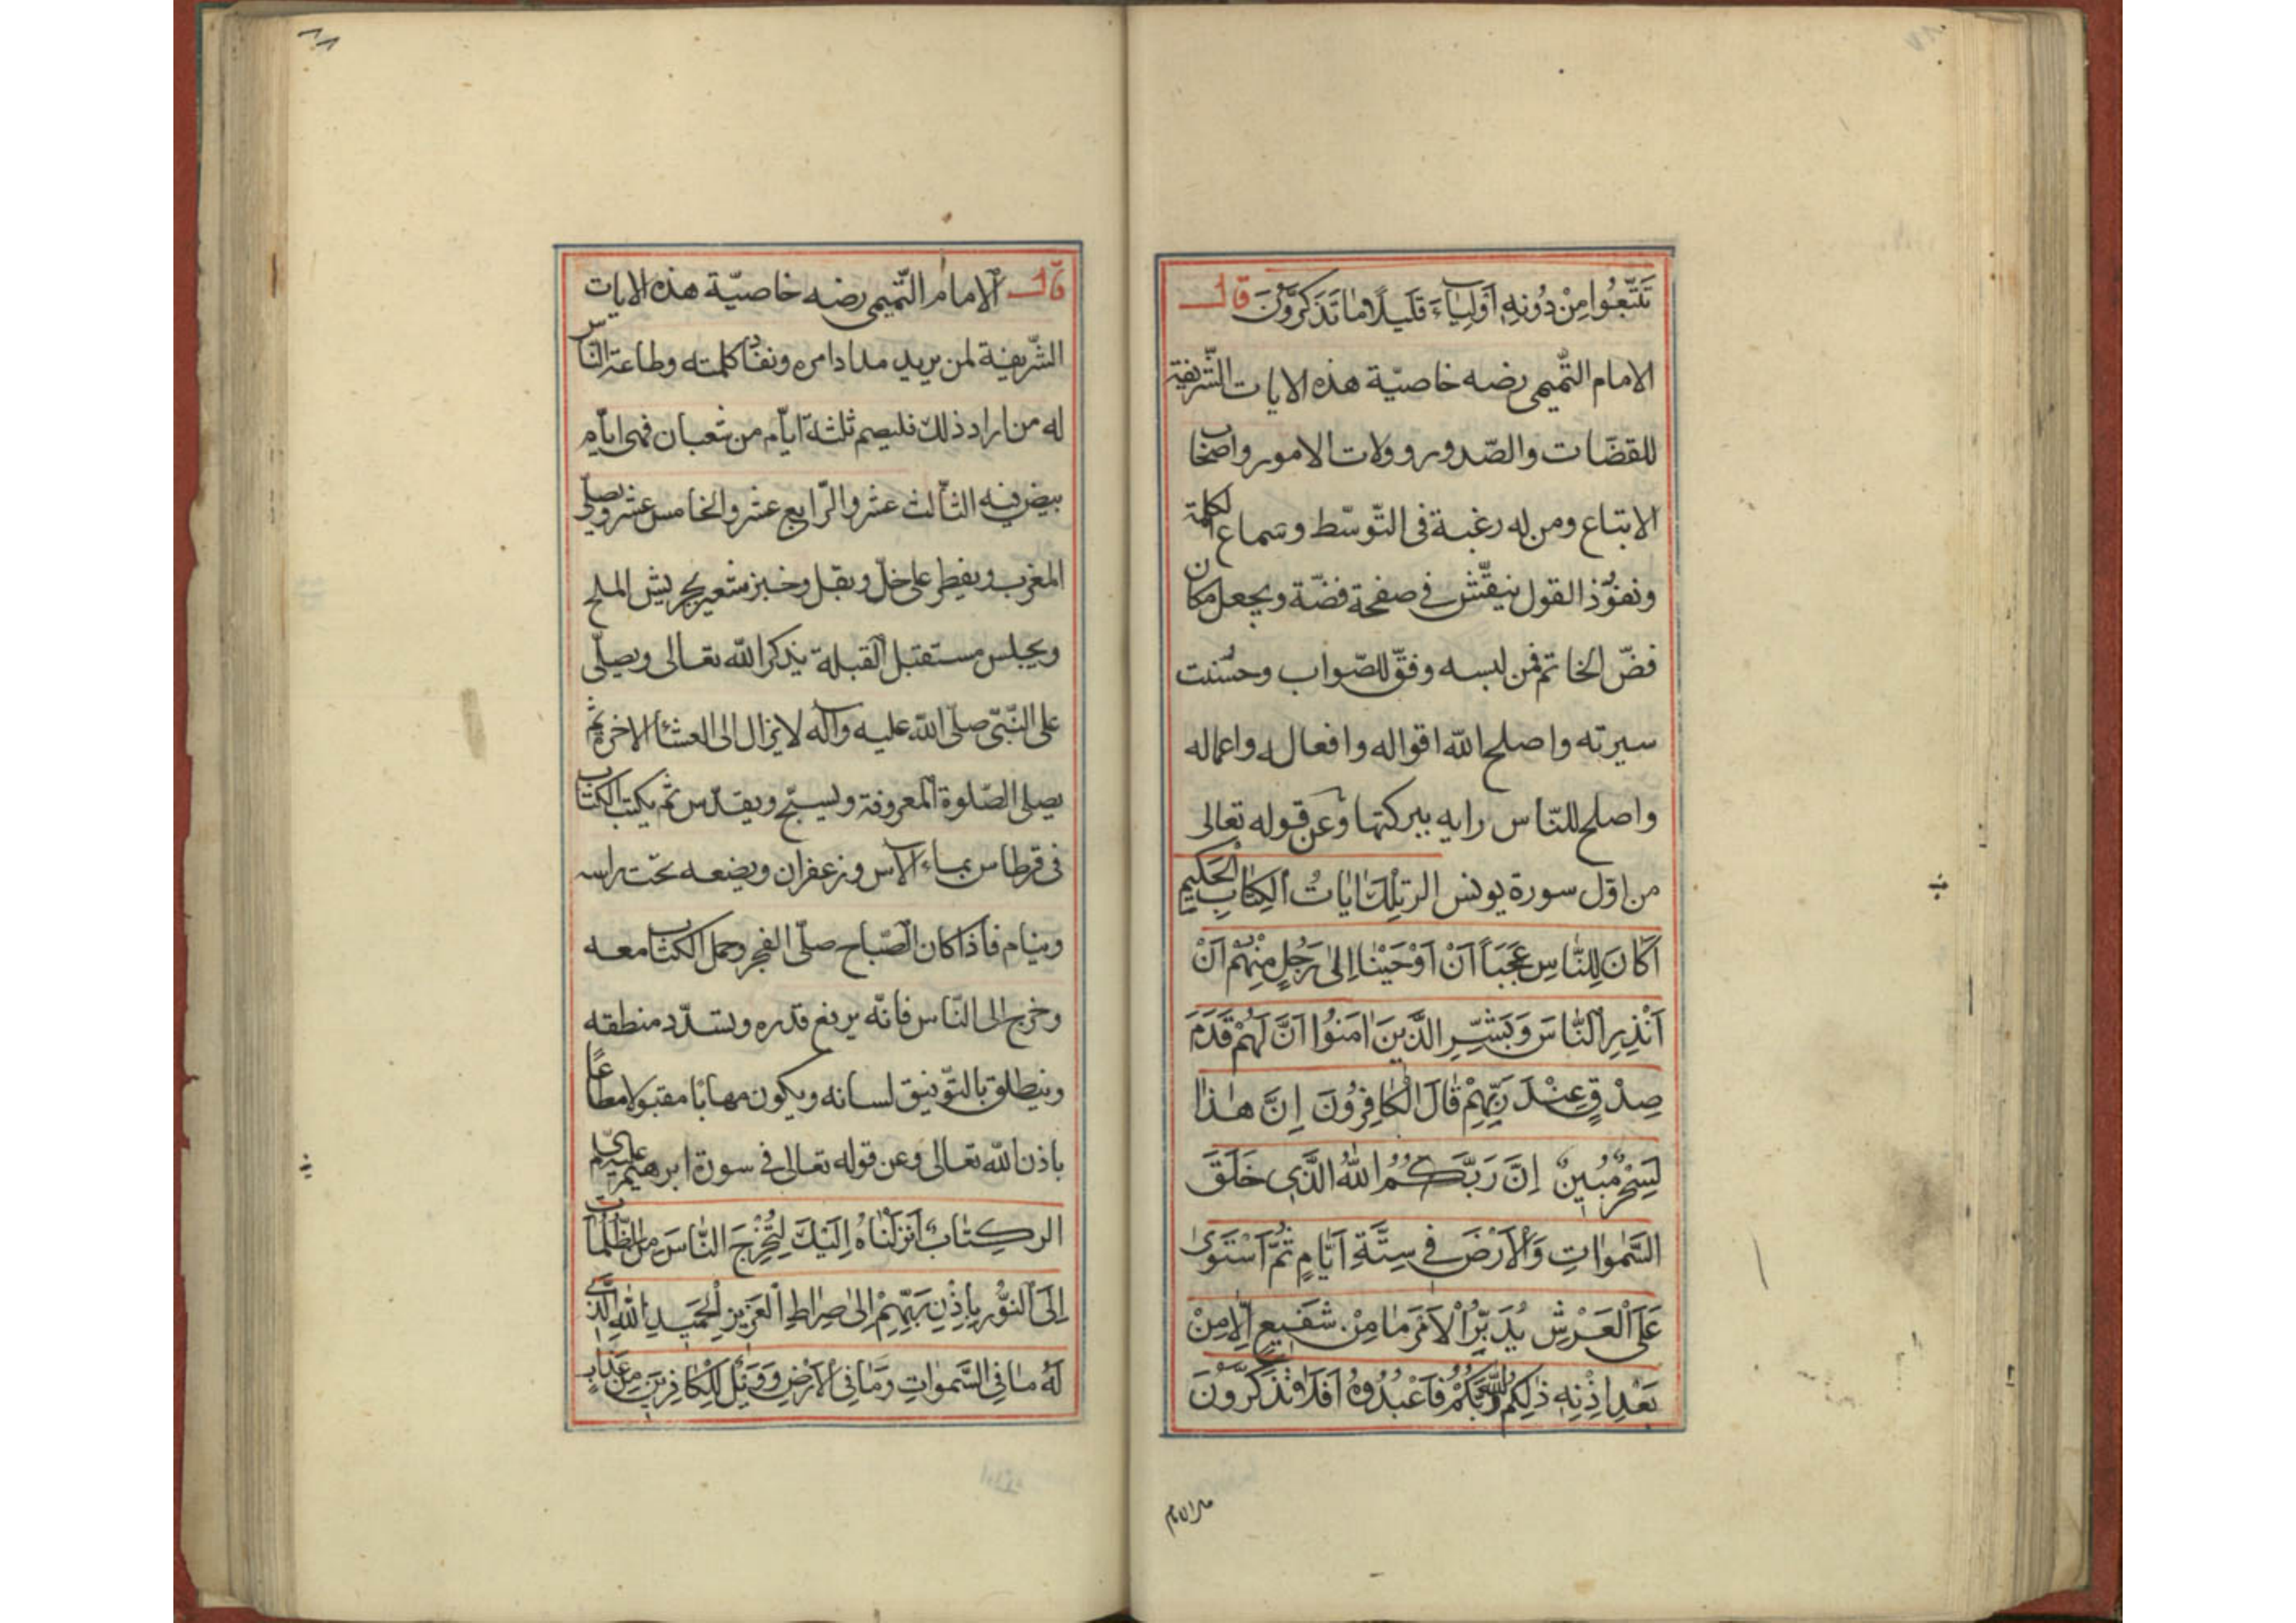 تَتَّبِعُوا مِنْ دُونِهِ اَوْلِيَاءَ قَلِيلًا مَا تَذَكَّرُونَ قال
الامام التّميمى رضه خاصيّة هذه الايات الشّريفة
للقضات والصّدور وولات الامور واصحاب
الاتباع ومن له رغبة فى التّوسّط وسماع الكلمة
ونفوّذ القول ينقّش فى صفحة فضّة ويجعل مكان
فضّ الخاتم فمن لبسه وفّق للصّواب وحسُنت
سيرته واصلح الله اقواله وافعاله واعماله
واصلح للنّاس رايه ببركتها وعن قوله تعالى
من اوّل سورة يونس الر تِلْكَ ايَاتُ الْكِتَابِ الْحَكِيمِ
اَكَانَ لِلنَّاسِ عَجَبًا اَنْ اَوْحَيْنَا اِلىٰ رَجُلٍ مِنْهُمْ اَنْ
اَنْذِرِ النَّاسَ وَبَشِّرِ الَّذِينَ اٰمَنُوا اَنَّ لَهُمْ قَدَمَ
صِدْقٍ عِنْدَ رَبِّهِمْ قَالَ الْكَافِرُونَ اِنَّ هٰذَا
لَسِحْرٌ مُبِينٌ اِنَّ رَبَّكُمُ اللهُ الَّذِى خَلَقَ
السَّمٰوَاتِ وَالْاَرْضَ فِى سِتَّةِ اَيَّامٍ ثُمَّ اسْتَوىٰ
عَلَى الْعَرْشِ يُدَبِّرُ الْاَمْرَ مَا مِنْ شَفِيعٍ اِلَّا مِنْ
بَعْدِ اِذْنِهِ ذٰلِكُمُ اللهُ رَبُّكُمْ فَاعْبُدُوهُ اَفَلَا تَذَكَّرُونَ
قال الامام
٨٨
قال الامام التّميمى رضه خاصيّة هذه الايات
الشّريفة لمن يريد مداد امره ونفاذ كلمته وطاعة النّاس
له من اراد ذلك فليصم ثلثة ايّام من شعبان فهى ايّام
بيض فيه الثّالث عشر والرّابع عشر والخامس عشر ويصلّى
المغرب ويفطر على خلّ وبقل وخبز شعير بجريش الملح
ويجلس مستقبل القبلة يذكر الله تعالى ويصلّى
على النّبّى صلّى الله عليه وآله لا يزال الى العشاء الاخرة ثمّ
يصلى الصّلوة المعروفة ويسبّح ويقدّس ثمّ يكتب الكتاب
فى قرطاس بماء الآس وزعفران ويضعه تحت راسه
وينام فاذا كان الصّباح صلّى الفجر وحمل الكتاب معه
وخرج الى النّاس فانّه يرفع قدره ويسدّد منطقه
وينطلق بالتّوفيق لسانه ويكون مهابًا مقبولا مطاعًا
باذن الله تعالى وعن قوله تعالى فى سورة ابرهيم عليه
الر كِتَابٌ اَنْزَلْنَاهُ اِلَيْكَ لِتُخْرِجَ النَّاسَ مِنَ الظُّلُمَاتِ
اِلَى النُّورِ بِاِذْنِ رَبِّهِمْ اِلىٰ صِرَاطِ الْعَزِيزِ الْحَمِيدِ اللهِ الَّذِى
لَهُ مَا فِى السَّمٰوَاتِ وَمَا فِى الْاَرْضِ وَوَيْلٌ لِلْكَافِرِينَ مِنْ عَذَابٍ